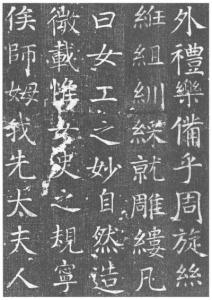 外禮樂備乎周旋絲
紝組紃綵就雕縷凡
曰女工之妙自然造
微載惟女史之規寧
俟師姆我先太夫人